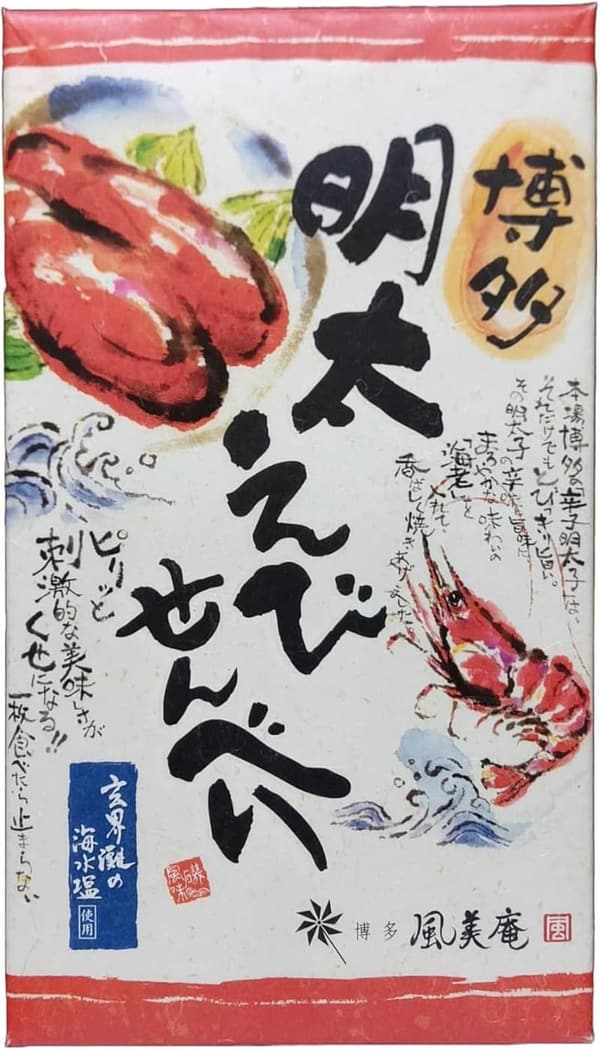 博多
明太
えび
せんべい
本場博多の「辛子明太子」は、
それだけでもとびっきり旨い。
その明太子の辛味と旨味に
まろやかな味わいの
「海老」を
入れて、
香ばしく焼きあげました。
ピリッと
刺激的な美味しさが
くせになる!!
一枚食べたら止まらない
玄界灘の
海水塩
使用
博多 風美庵
風